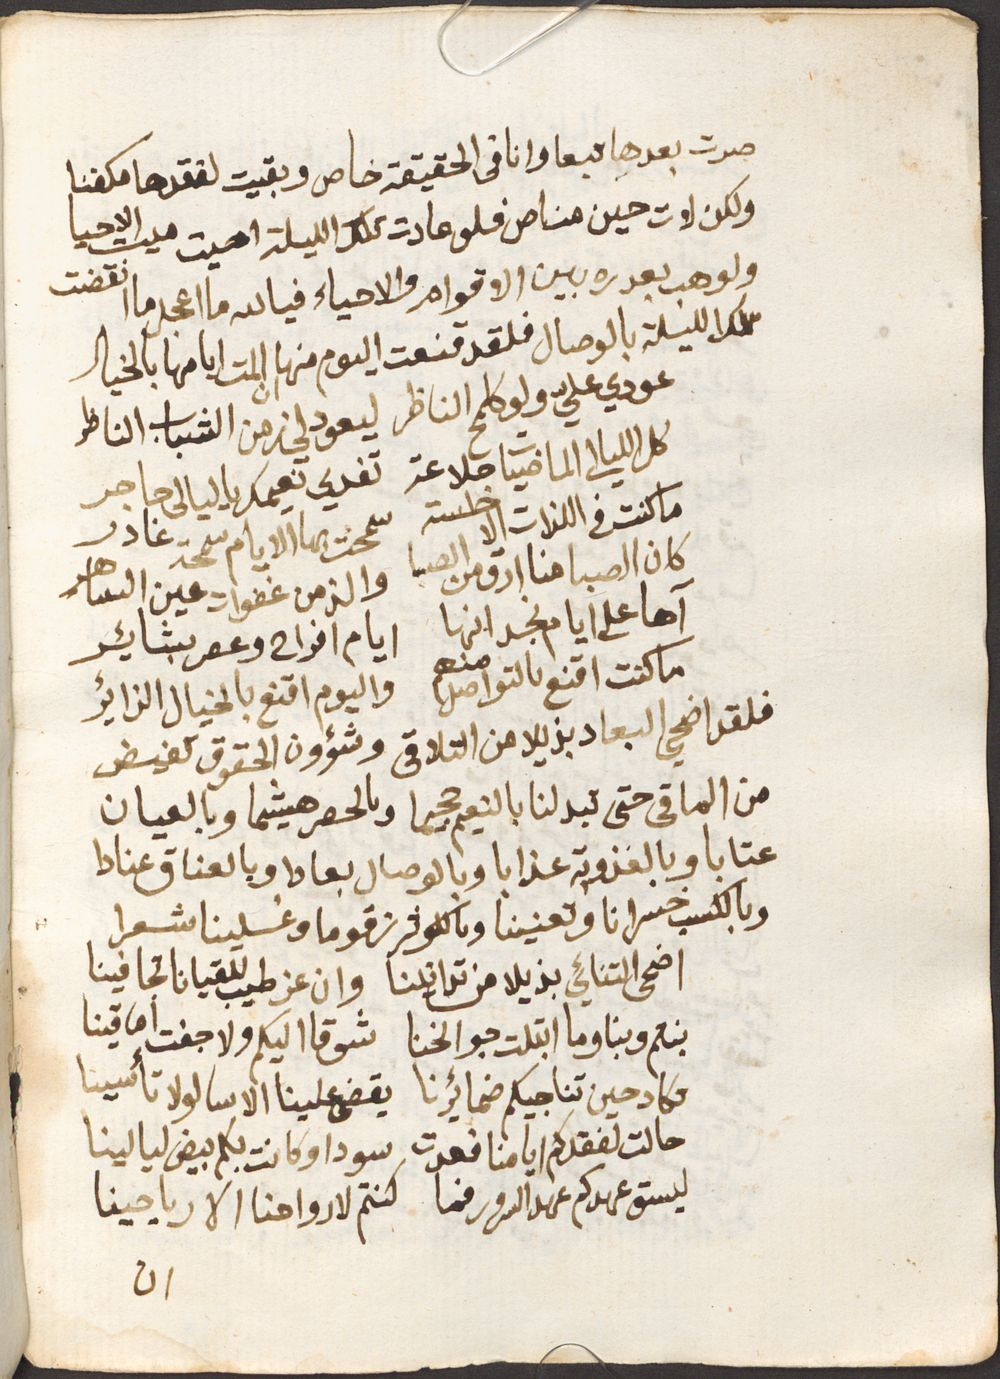 صرت بعدها تبعا وانا فى الحقيقة خاص وبقيت لفقدها مكفنا
ولكن لات حين مناص فلو عادت تلك الليلة احيت ميت الاحيا
ولوهب بعدره بين الاقوام والاحياء فيالله ما اعجل ما انقضت
تلك الليلة بالوصال فلقد قنعت اليوم منها ان المت ايامها بالخيال
عودي علي ولو كلمح الناظر ليعود لى زمن الشباب الناظر
كل الليالى الماضيات خلاعة تفدي نعيمك يا ليالى حاجر
ما كنت فى اللذات الا خلسة سمحت بها الايام سمحة غادر
كان الصبا منا ارق من الصبا والذ من غفوات عين الساهر
آها على ايام نجد انها ايام افراح وعصر بشاير
ما كنت اقنع بالتواصل منهم واليوم اقنع بالخيال الزائر
فلقد اضحى البعاد بذيلا من التلاقى وشؤون الحقوق تفيض
من الماقى حتى تبدلنا بالنعيم جحيما وبالحصر هيشما وبالعيان
عتابا وبالعذوبة عذابا وبالوصال بعادا وبالعناق عنادا
وبالكسب خسرانا وتعنيننا وبالكوثر زقوما وغسلينا شعرا
اضحى التنائي بذيلا من تدانينا وان عز طيب للقيانا تجافينا
بنتم وبنا وما ابتلت جوانحنا شوقا اليكم ولا جفت اماقينا
نكاد حين تناجيكم ضمائرنا يقضى علينا الاسا لولا تأسينا
حالت لفقدكم ايامنا فعدت سودا وكانت بكم بيض ليالينا
ليسق عهدكم عهد السرور فما كنتم لارواحنا الا رياحينا
ان